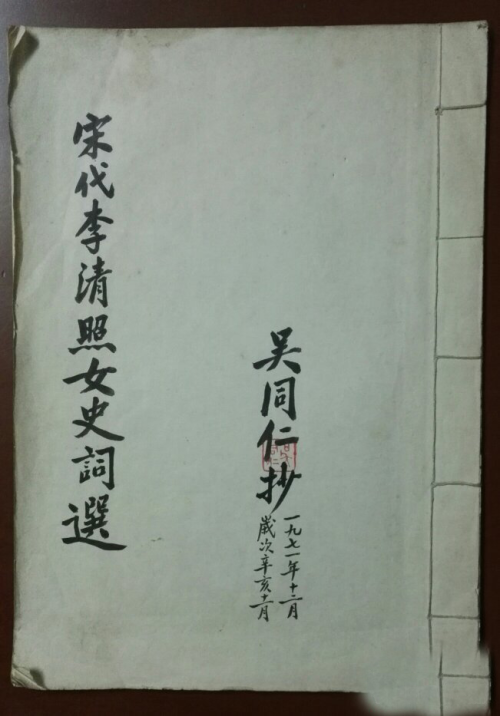 宋代李清照女史詞選
吴同仁抄
一九七一年十二月
歲次辛亥十一月